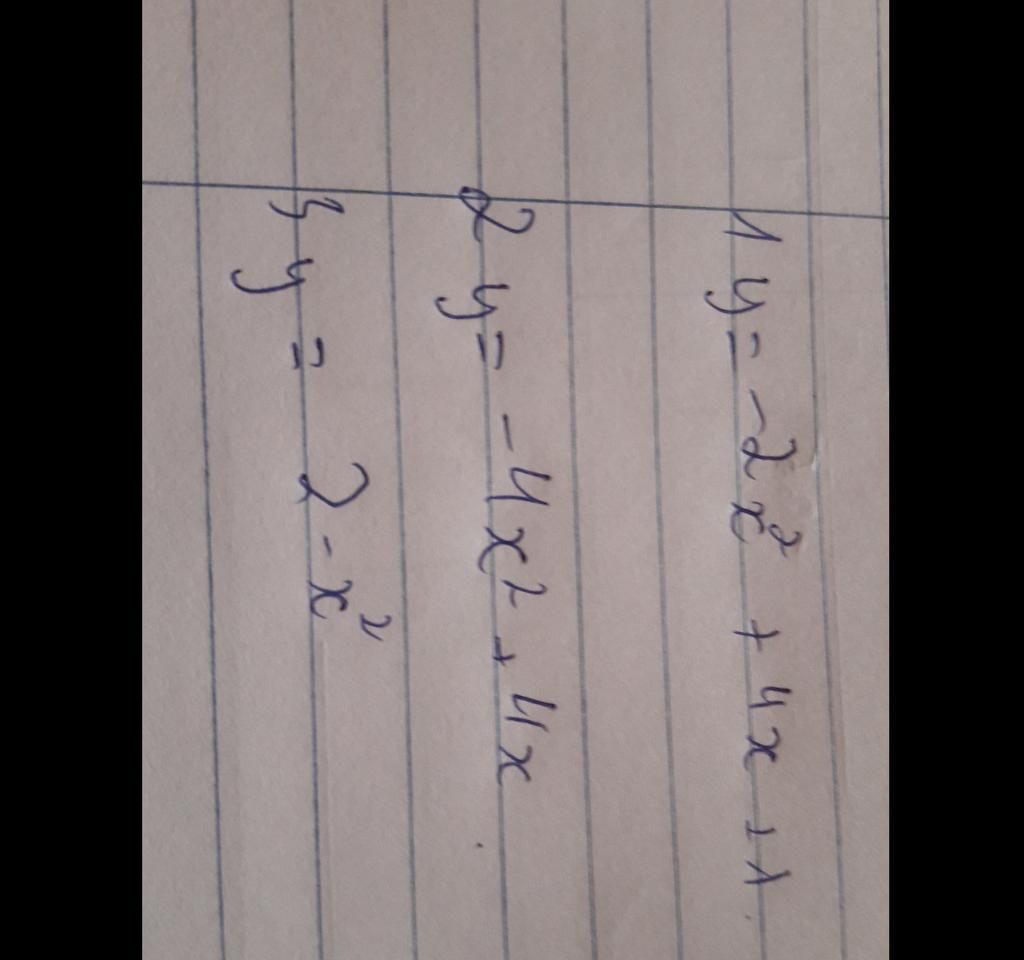 1 y = -2x² + 4x + 1
2 y = -4x² + 4x
3 y = 2 - x²